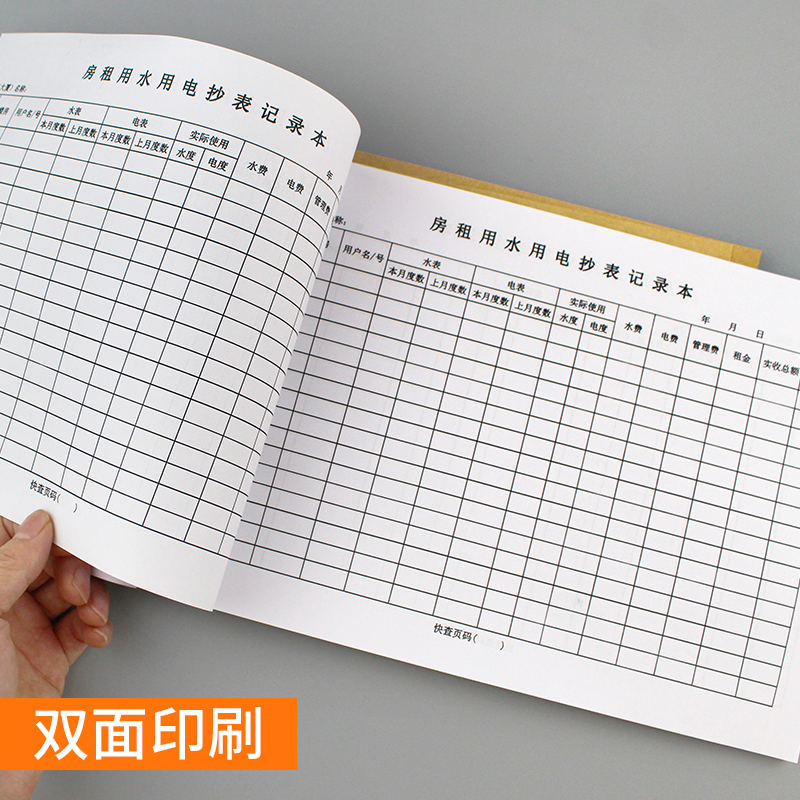 房租用水用电抄表记录本
大厦）名称：
年 月
用户名/号 水表 电表 实际使用 水费 电费 管理费
本月度数 上月度数 本月度数 上月度数 水度 电度
快查页码（ ）
房租用水用电抄表记录本
称：
年 月 日
用户名/号 水表 电表 实际使用 水费 电费 管理费 租金 实收总额
本月度数 上月度数 本月度数 上月度数 水度 电度
快查页码（ ）
双面印刷